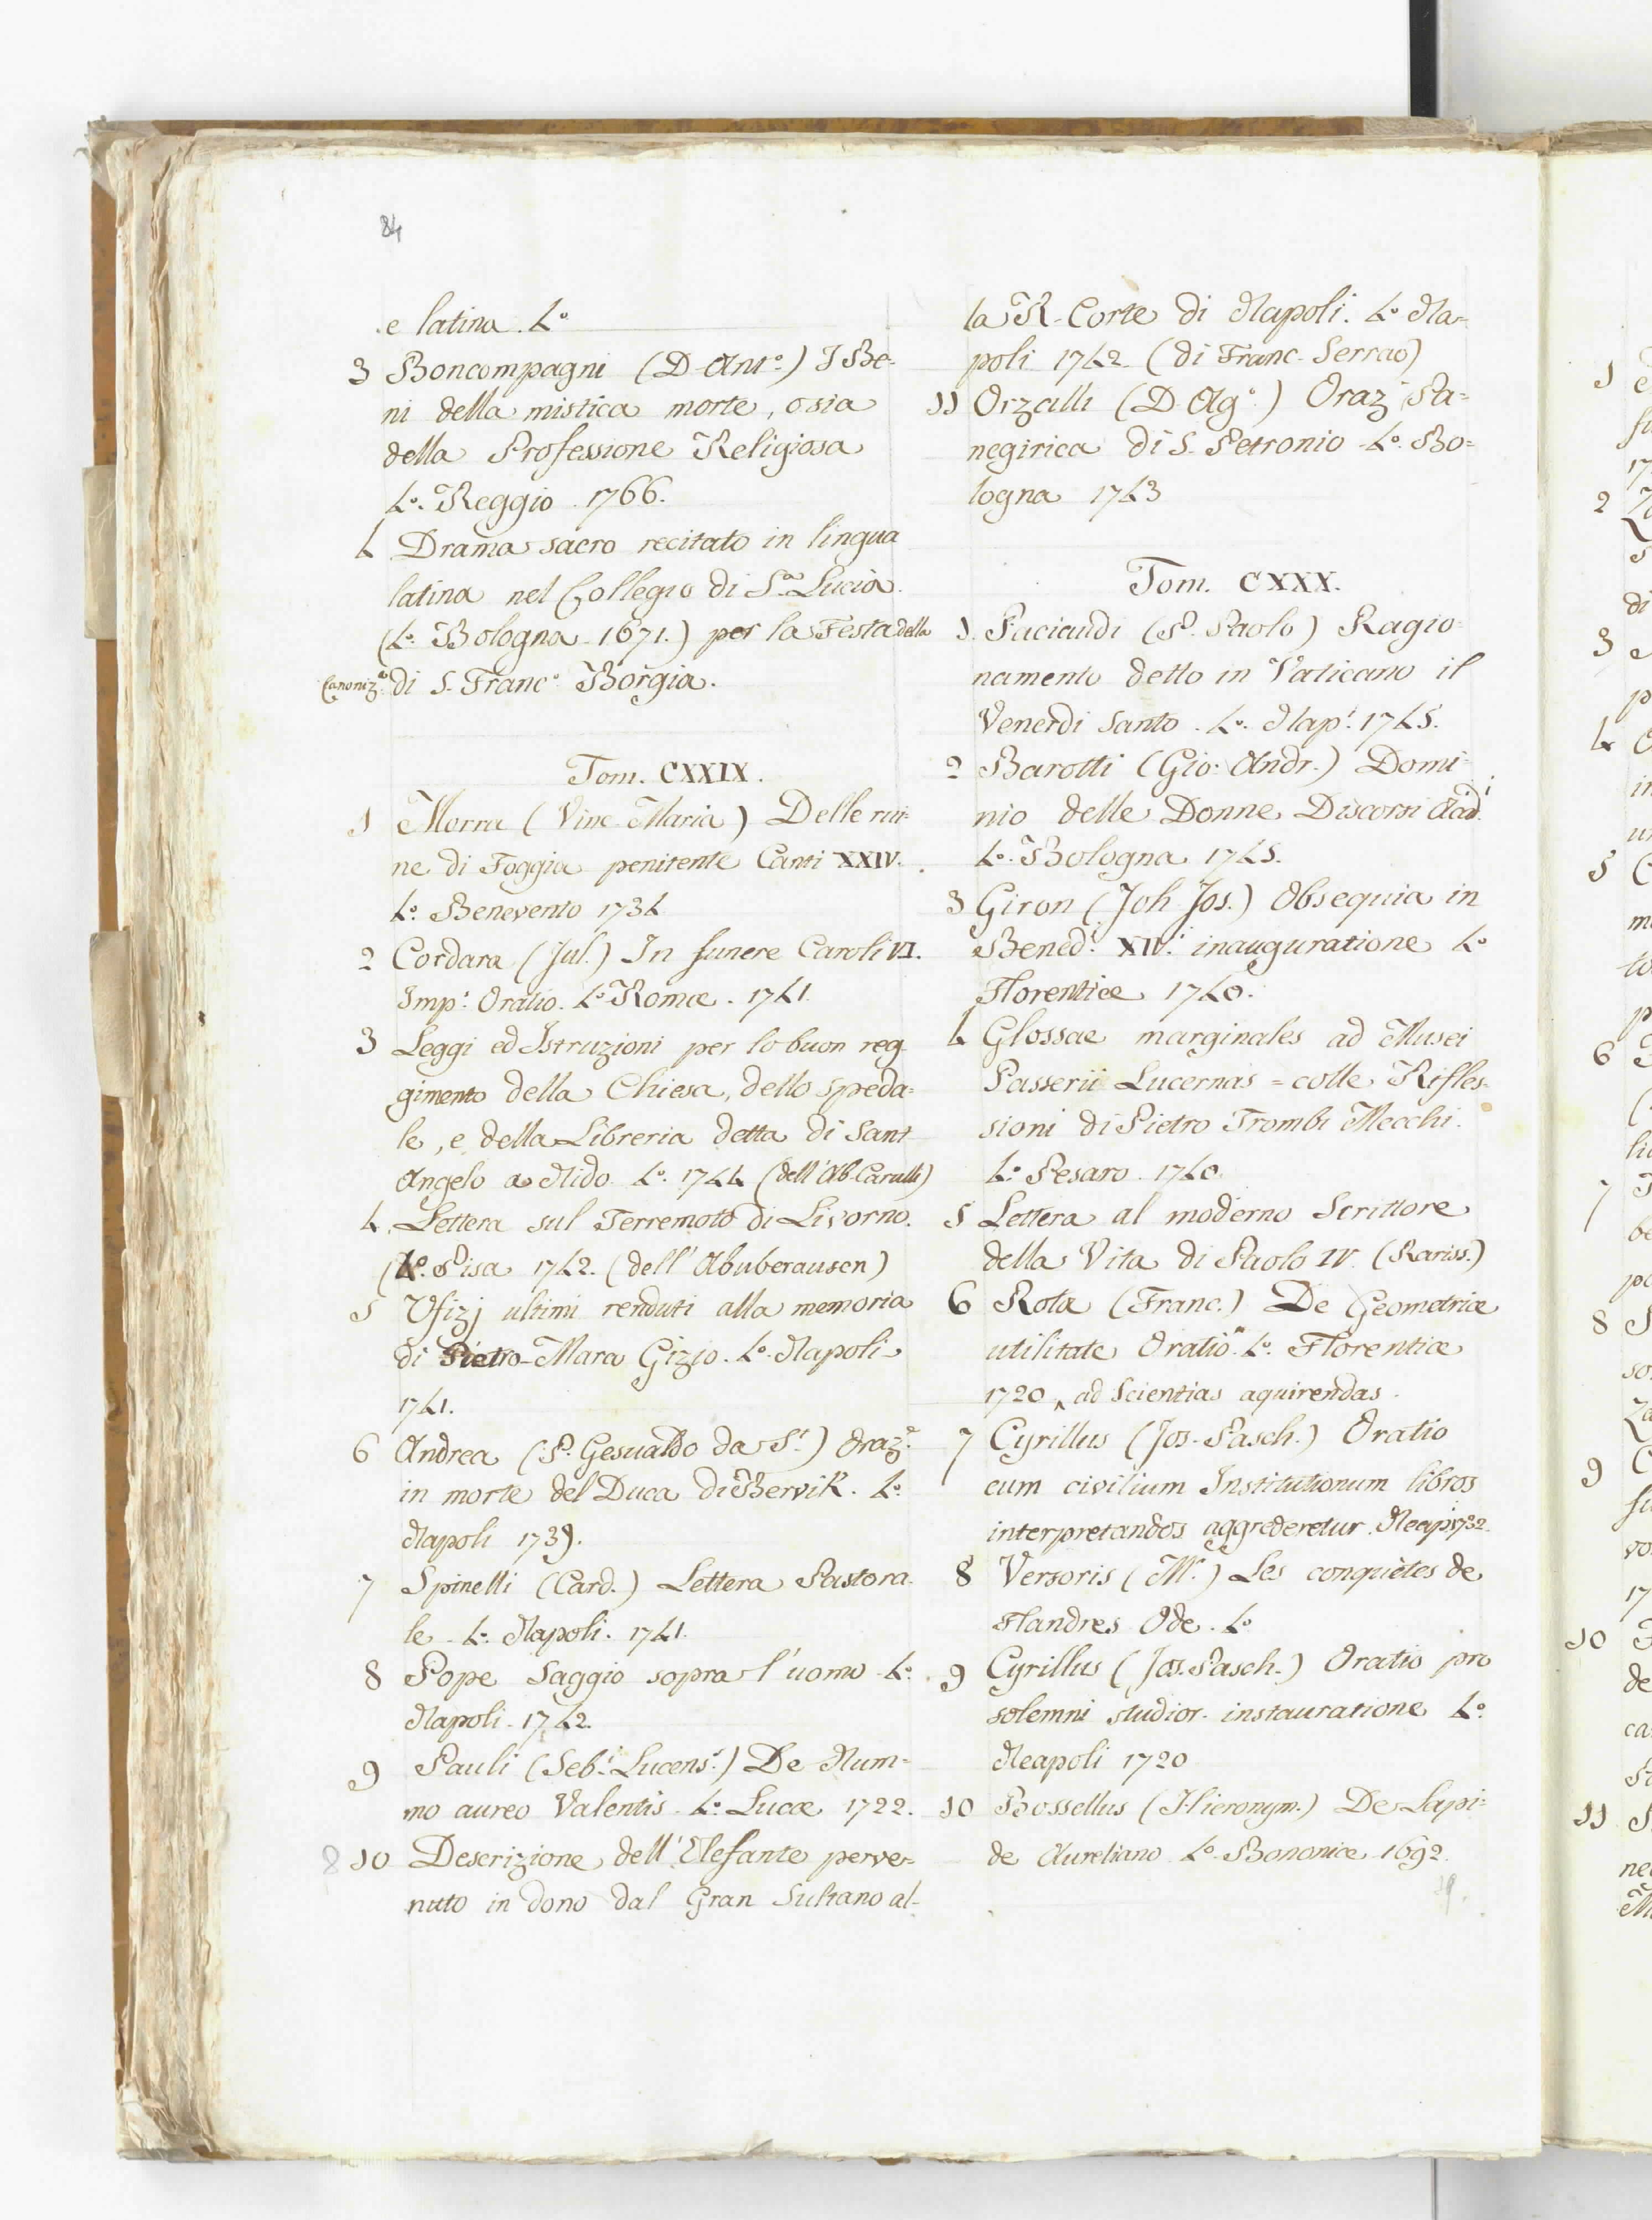 84
e latina. 4.º
3 Boncompagni (D. Ant.º) I Be-
ni della mistica morte, osia
della Professione Religiosa
4.º Reggio 1766.
4 Drama sacro recitato in lingua
latina nel Collegio di S.ª Lucia
(4.º Bologna 1671.) per la Festa della
Canoniz.ª di S. Franc.º Borgia.
Tom. CXXIX.
1 Morra (Vinc. Maria) Delle rui-
ne di Foggia penitente Canti XXIV.
4.º Benevento 1734
2 Cordara (Jul.) In funere Caroli VI.
Imp.i Oratio. 4.º Romæ. 1741.
3 Leggi ed Istruzioni per lo buon reg-
gimento della Chiesa, dello speda-
le, e della Libreria detta di Sant
Angelo a Nido 4.º 1744 (dell'Ab. Carulli)
4. Lettera sul Terremoto di Livorno.
(4.º Pisa 1742. (dell' Abuberausen)
5 Ufizj ultimi renduti alla memoria
di Pietro-Mara Gizio. 4.º Napoli
1741.
6 Andrea (P. Gesualdo da S.t) Oraz.e
in morte del Duca di Bervik. 4.º
Napoli 1739.
7 Spinelli (Card.) Lettera Pastora-
le 4.º Napoli. 1741.
8 Pope Saggio sopra l'uomo 4.º
Napoli. 1742.
9 Pauli (Seb.i Lucens.s) De Num-
mo aureo Valentis 4.º Lucæ 1722.
10 Descrizione dell'Elefante perve-
nuto in dono dal Gran Sultano al-
la R. Corte di Napoli. 4.º Na-
poli 1742. (di Franc. Serrao)
11 Orzalli (D. Ag.º) Oraz. Pa-
negirica di S. Petronio 4.º Bo-
logna 1743
Tom. CXXX.
1. Paciaudi (P. Paolo) Ragio-
namento detto in Vaticano il
Venerdi Santo. 4.º Nap.i 1745.
2 Barotti (Gio: Andr.) Domi-
nio delle Donne Discorsi Acad.i
4.º Bologna 1745.
3 Giron (Joh. Jos.) Obsequia in
Bened.i XIV.i inauguratione 4.º
Florentiæ 1740.
4 Glossae marginales ad Musei
Passerii Lucernas = colle Rifles-
sioni di Pietro Trombi Mecchi.
4.º Pesaro 1740.
5 Lettera al moderno Scrittore
della Vita di Paolo IV. (Rariss.)
6 Rota (Franc.) De Geometriæ
utilitate Oratio 4.º Florentiæ
1720 ^ ad Scientias aquirendas.
7 Cyrillus (Jos. Pasch.) Oratio
cum civilium Institutionum libros
interpretandos aggrederetur. Neap. 1732.
8 Versoris (M.r) Les conquêtes de
Flandres Ode. 4.º
9 Cyrillus (Jos. Pasch.) Oratio pro
solemni studior. instauratione 4.º
Neapoli 1720
10 Bossellus (Hieronym.) De Lapi-
de Aureliano 4.º Bononiæ 1692.